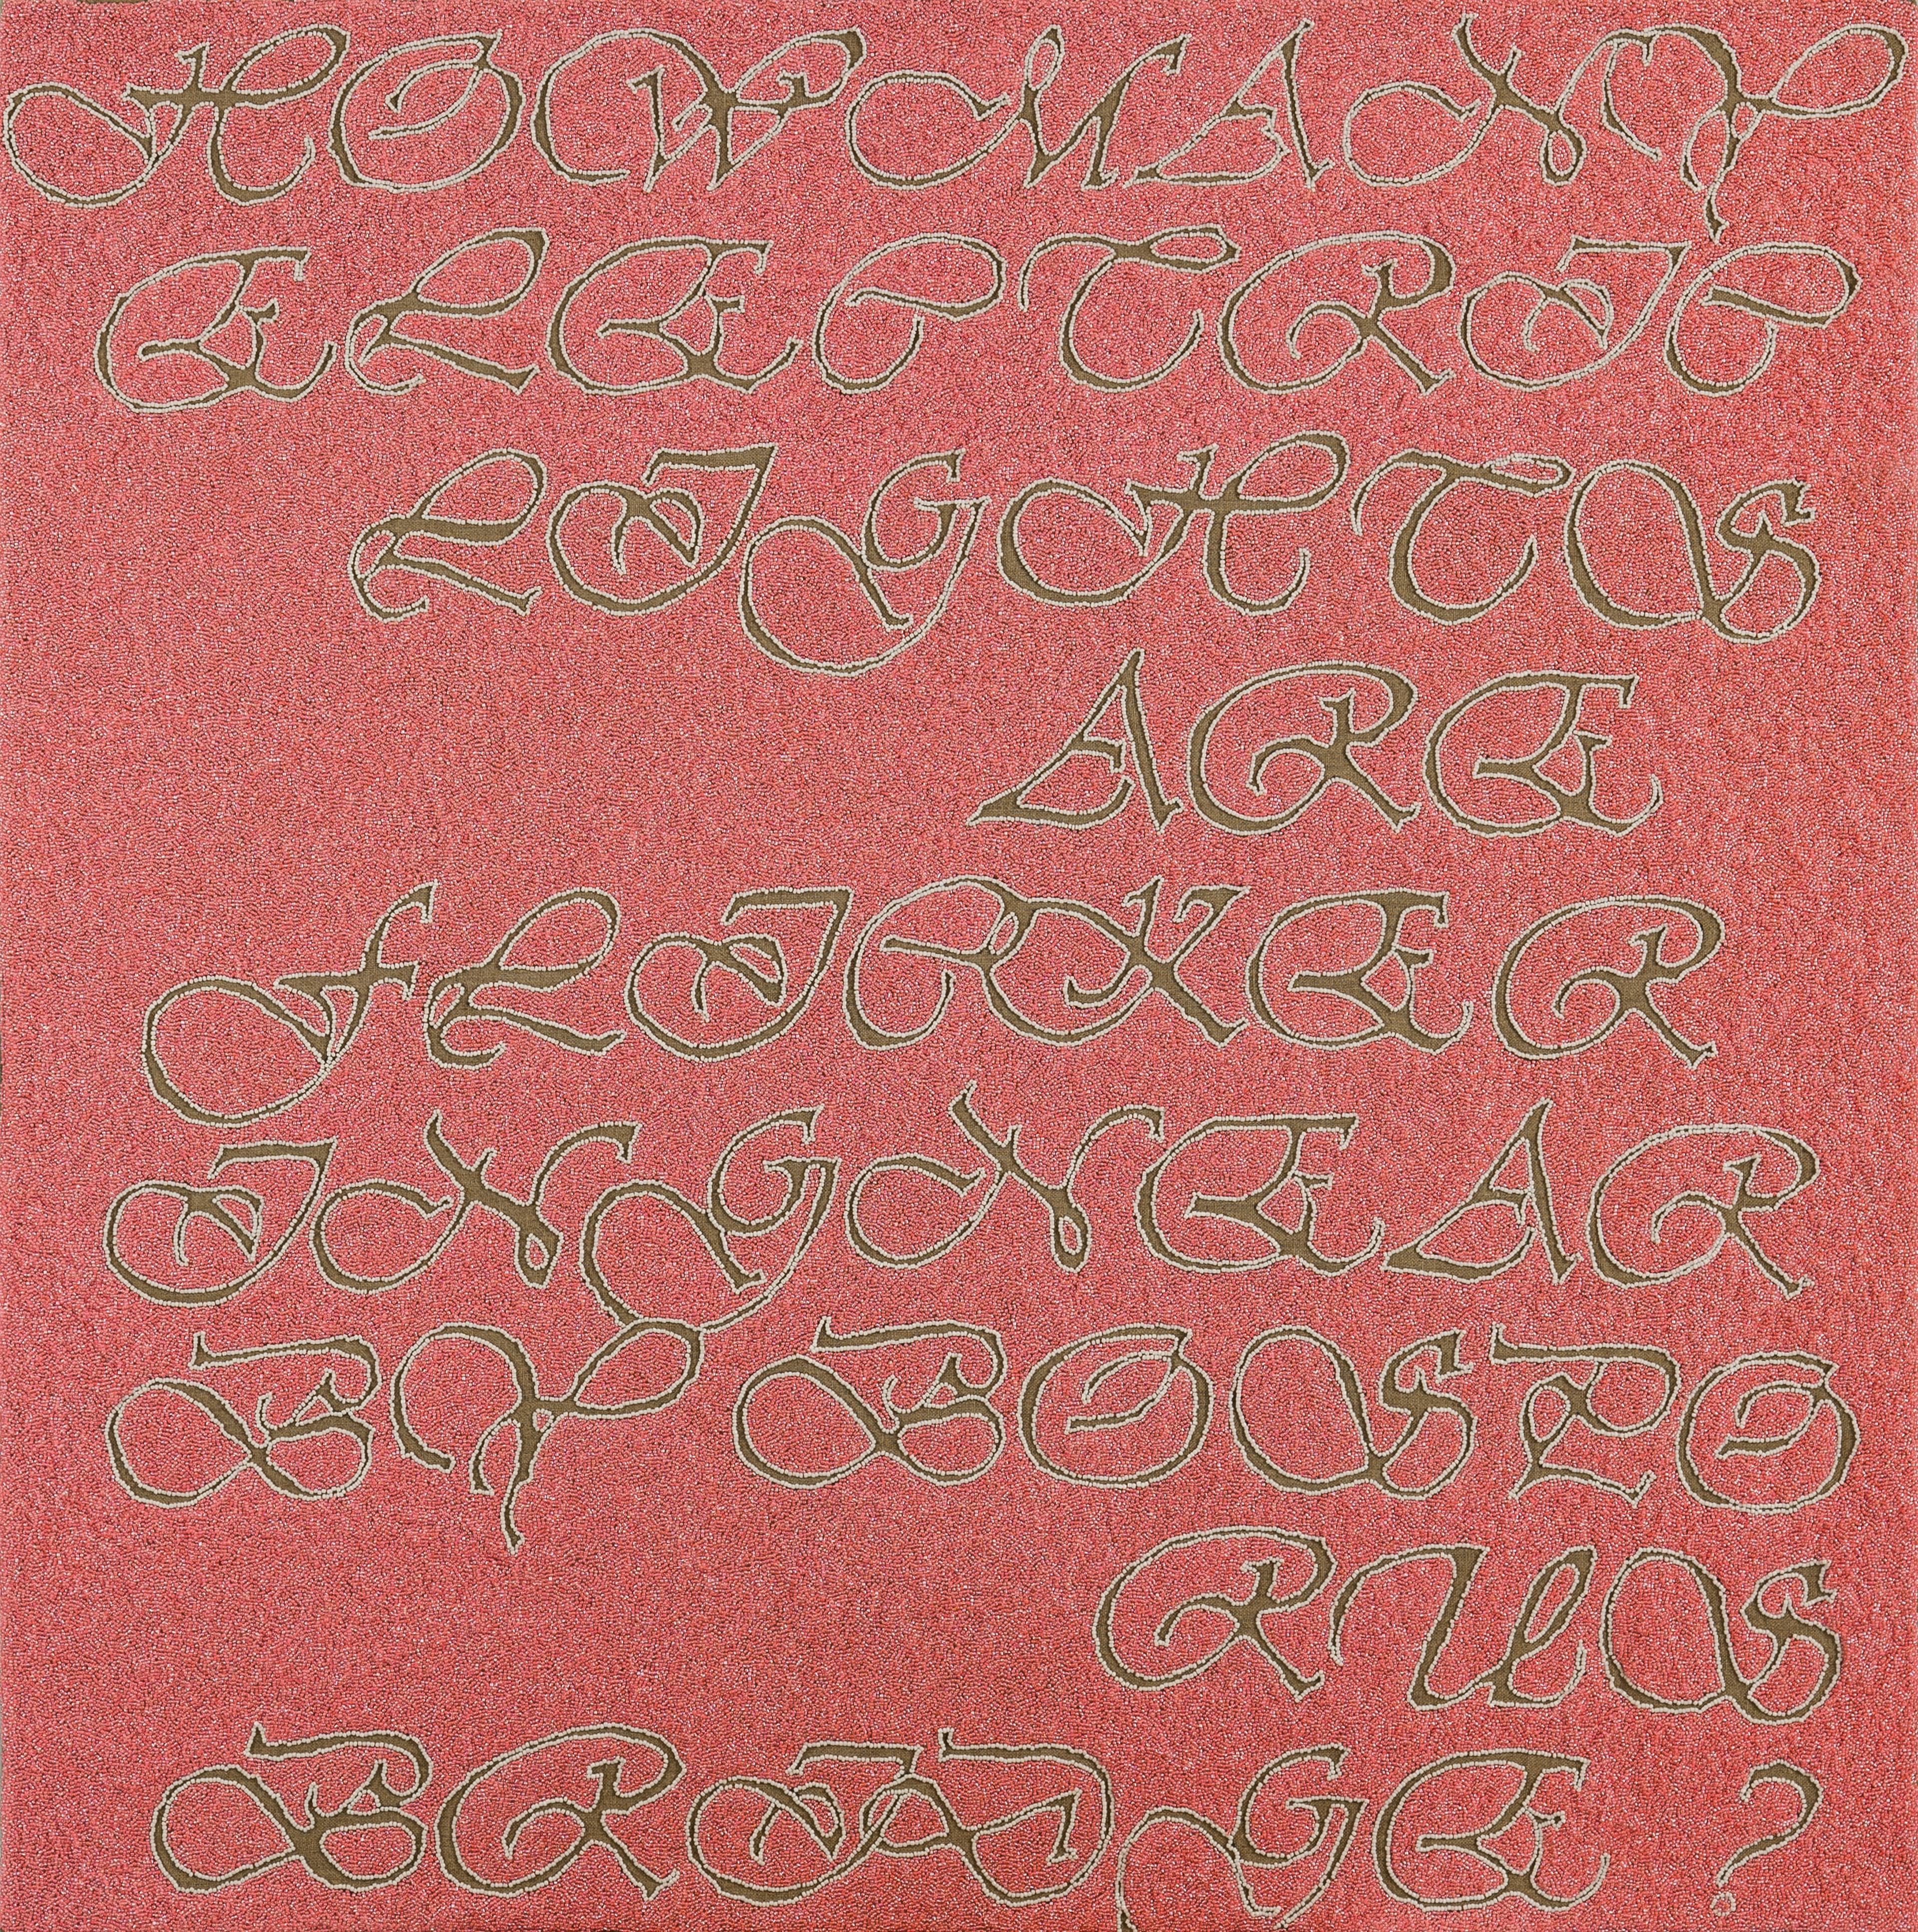 HOW MANY
ELECTRIC
LIGHTS
ARE
FLICKER
ING NEAR
BY BOSPO
RUS
BRIDGE ?